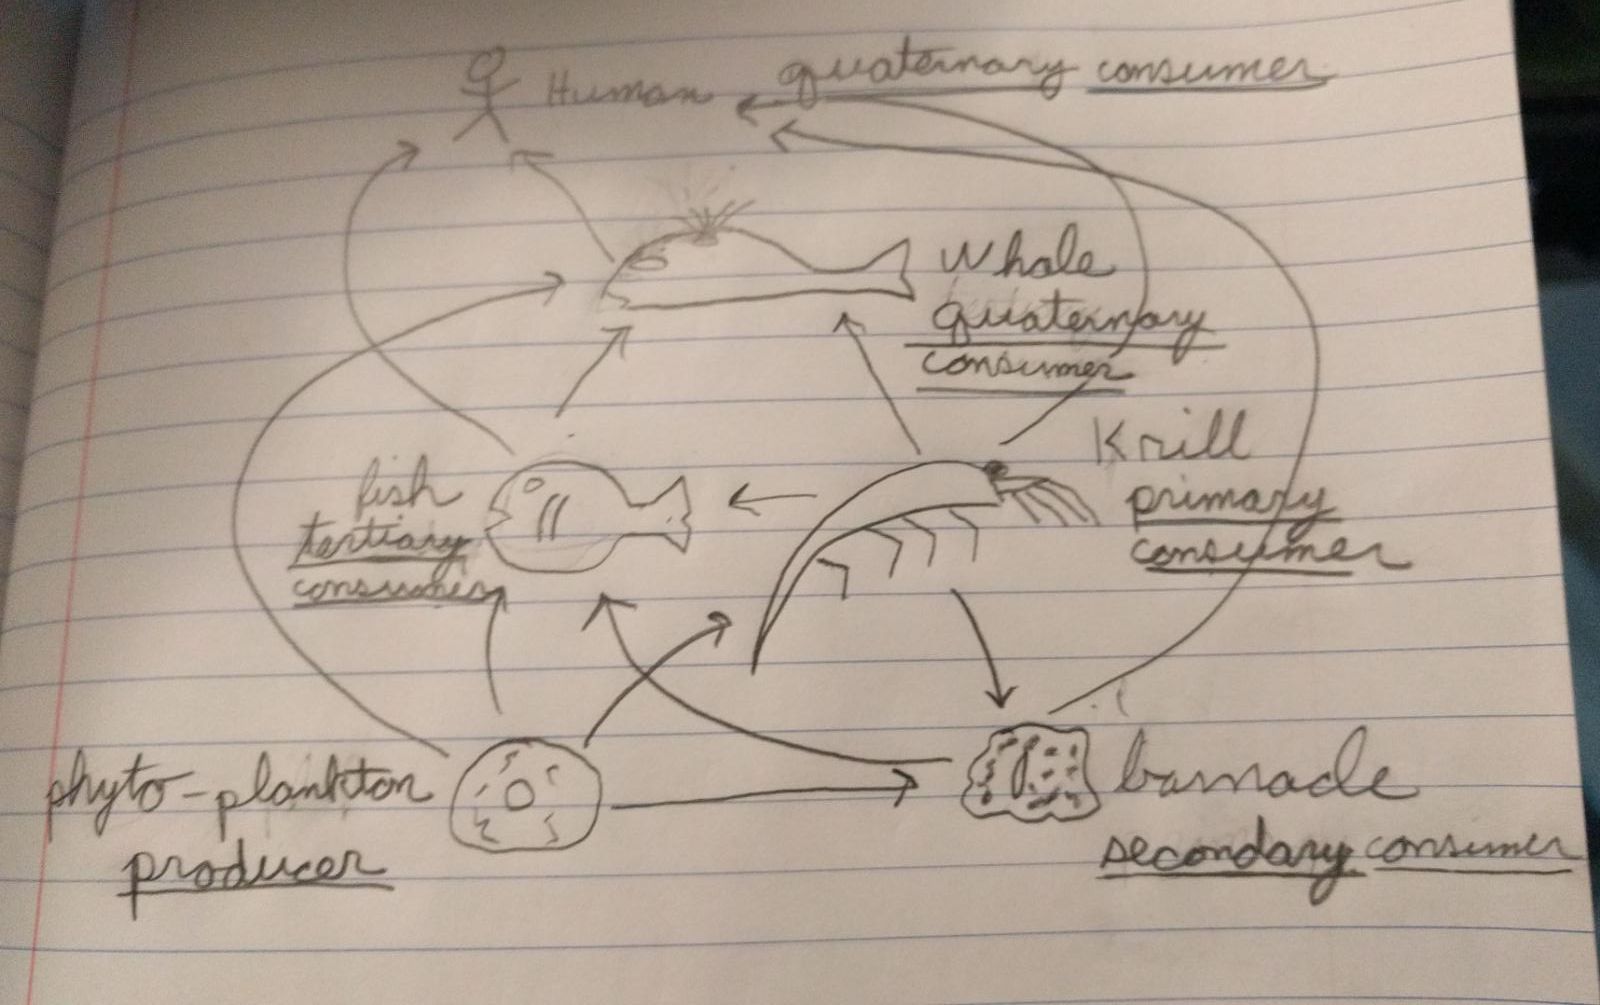 Human quaternary consumer
Whale
quaternary
consumer
fish
tertiary
consumer
Krill
primary
consumer
phyto-plankton
producer
barnacle
secondary consumer